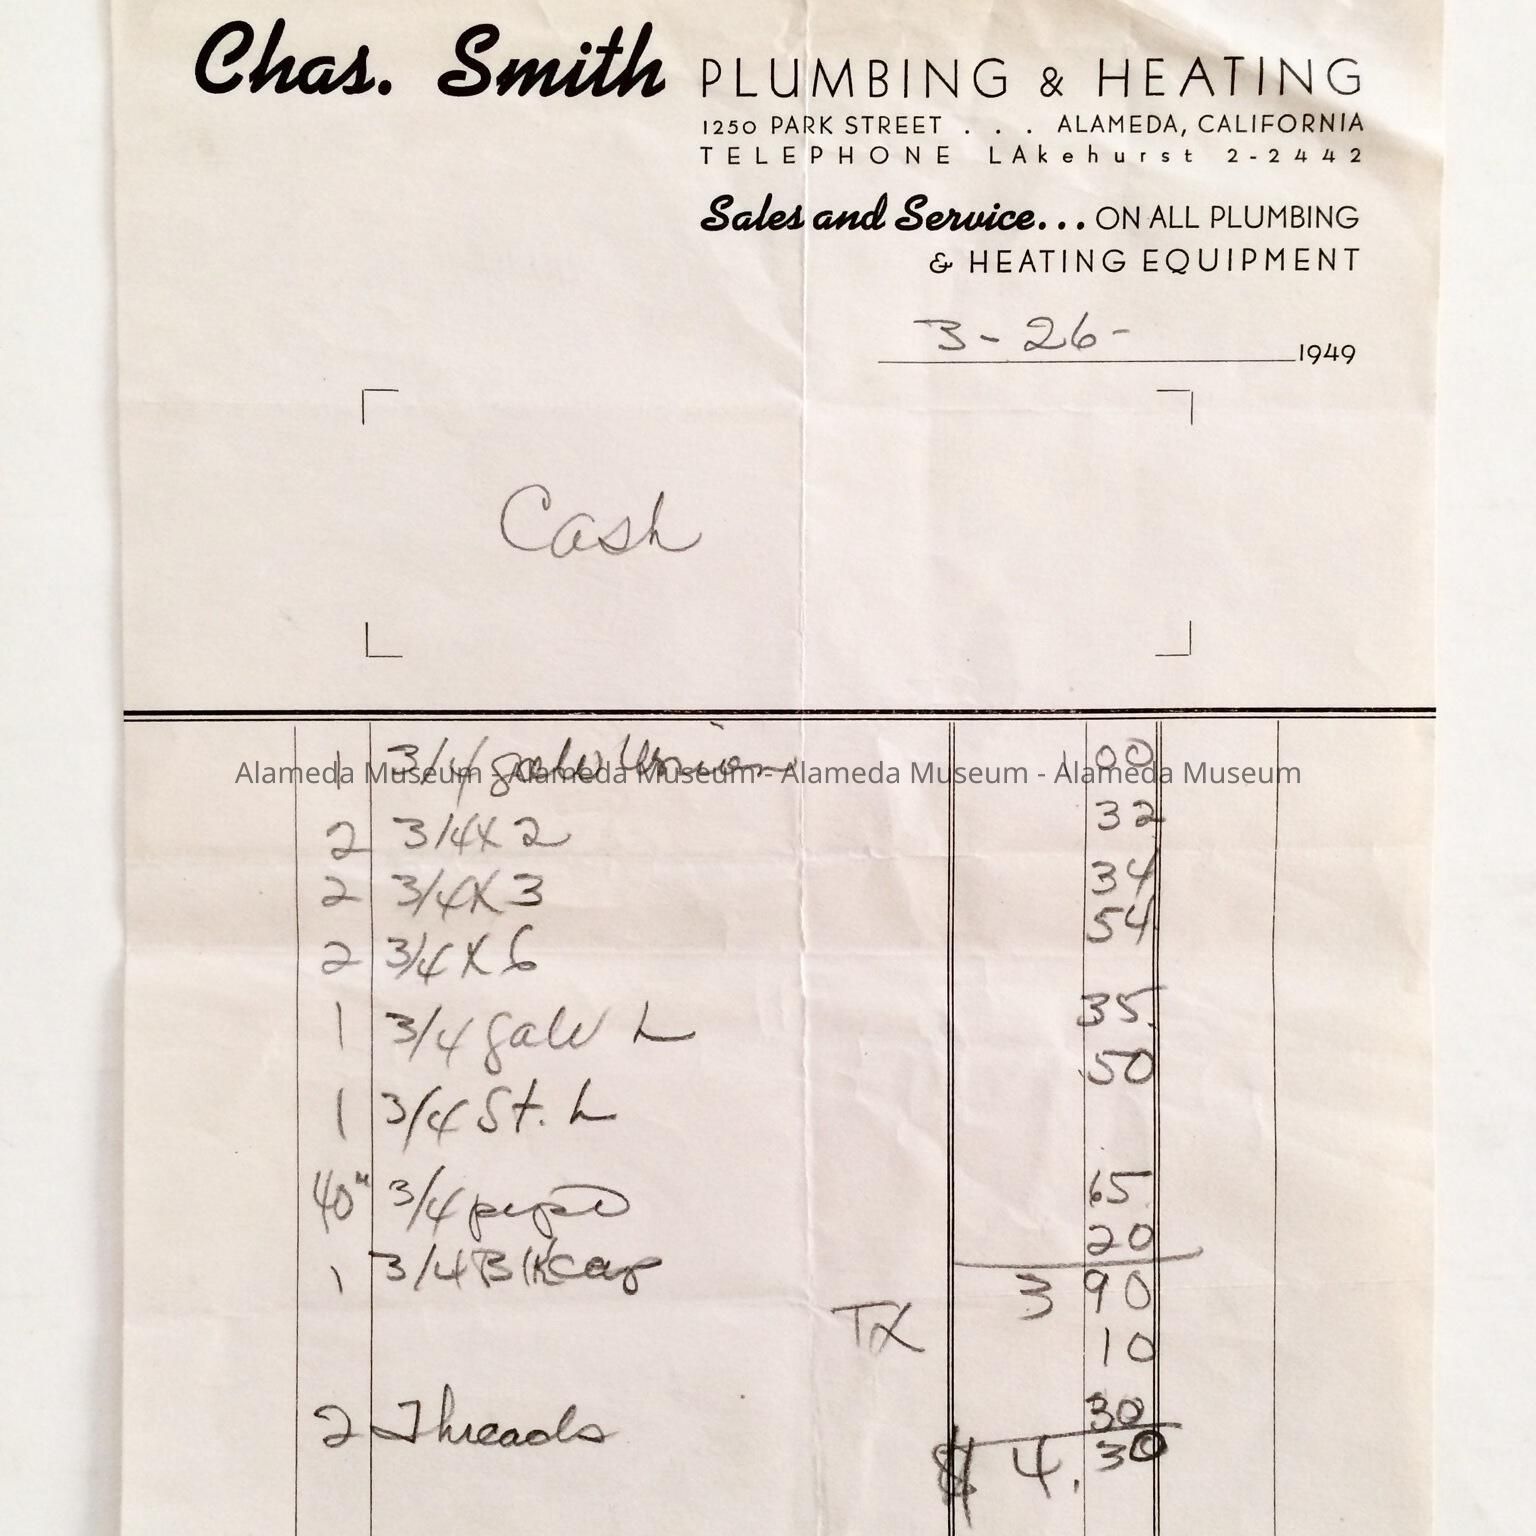 Chas. Smith PLUMBING & HEATING
1250 PARK STREET . . . ALAMEDA, CALIFORNIA
TELEPHONE LAkehurst 2-2442
Sales and Service... ON ALL PLUMBING
& HEATING EQUIPMENT
3-26- 1949
Cash
1 3/4 galv Union 1 00
Alameda Museum - Alameda Museum - Alameda Museum - Alameda Museum
2 3/4 X 2 32
2 3/4 X 3 34
2 3/4 X 6 54
1 3/4 galv L 35
1 3/4 St. L .50
40" 3/4 pipe 65
1 3/4 Blk cap 20
3 90
TX 10
2 Threads 30
$ 4.30